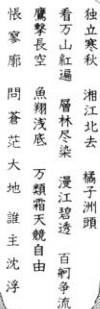 独立寒秋　湘江北去　橘子洲頭
看万山紅遍　層林尽染　漫江碧透　百舸争流
鷹撃長空　魚翔浅底　万類霜天競自由
悵寥廓　問蒼茫大地　誰主沈浮